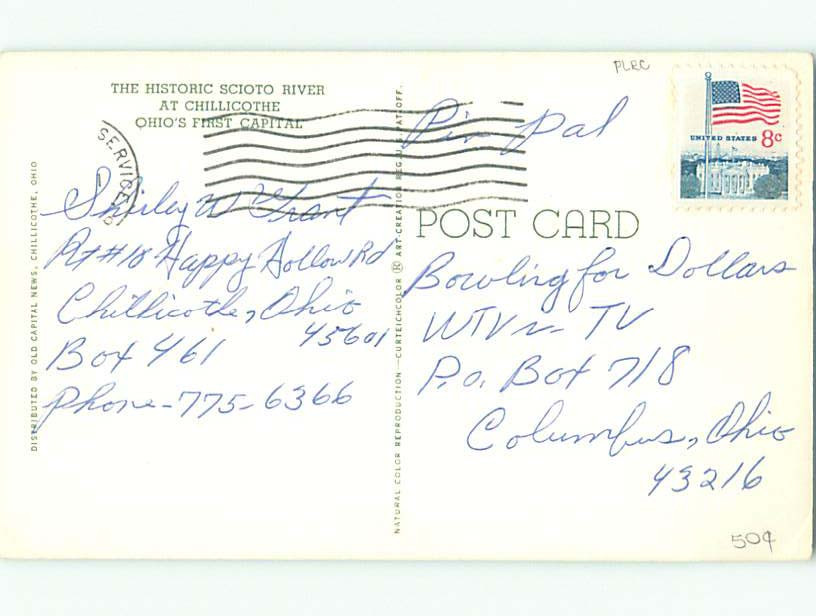 PLRC
THE HISTORIC SCIOTO RIVER
AT CHILLICOTHE
OHIO'S FIRST CAPITAL
SERVICE
Shirley W Grant
Rt #10 Happy Hollow Rd
Chillicothe, Ohio
45601
Box 461
Phone-775-6366
DISTRIBUTED BY OLD CAPITAL NEWS, CHILLICOTHE, OHIO
NATURAL COLOR REPRODUCTION—CURTEICHCOLOR ® ART-CREATION REG. U.S. PAT. OFF.
Pin Pal
UNITED STATES 8c
POST CARD
Bowling for Dollars
WTVN-TV
P.O. Box 718
Columbus, Ohio
43216
50¢